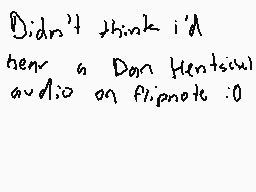 Didn't think i'd
hear a Dan Hentschel
audio on flipnote :0